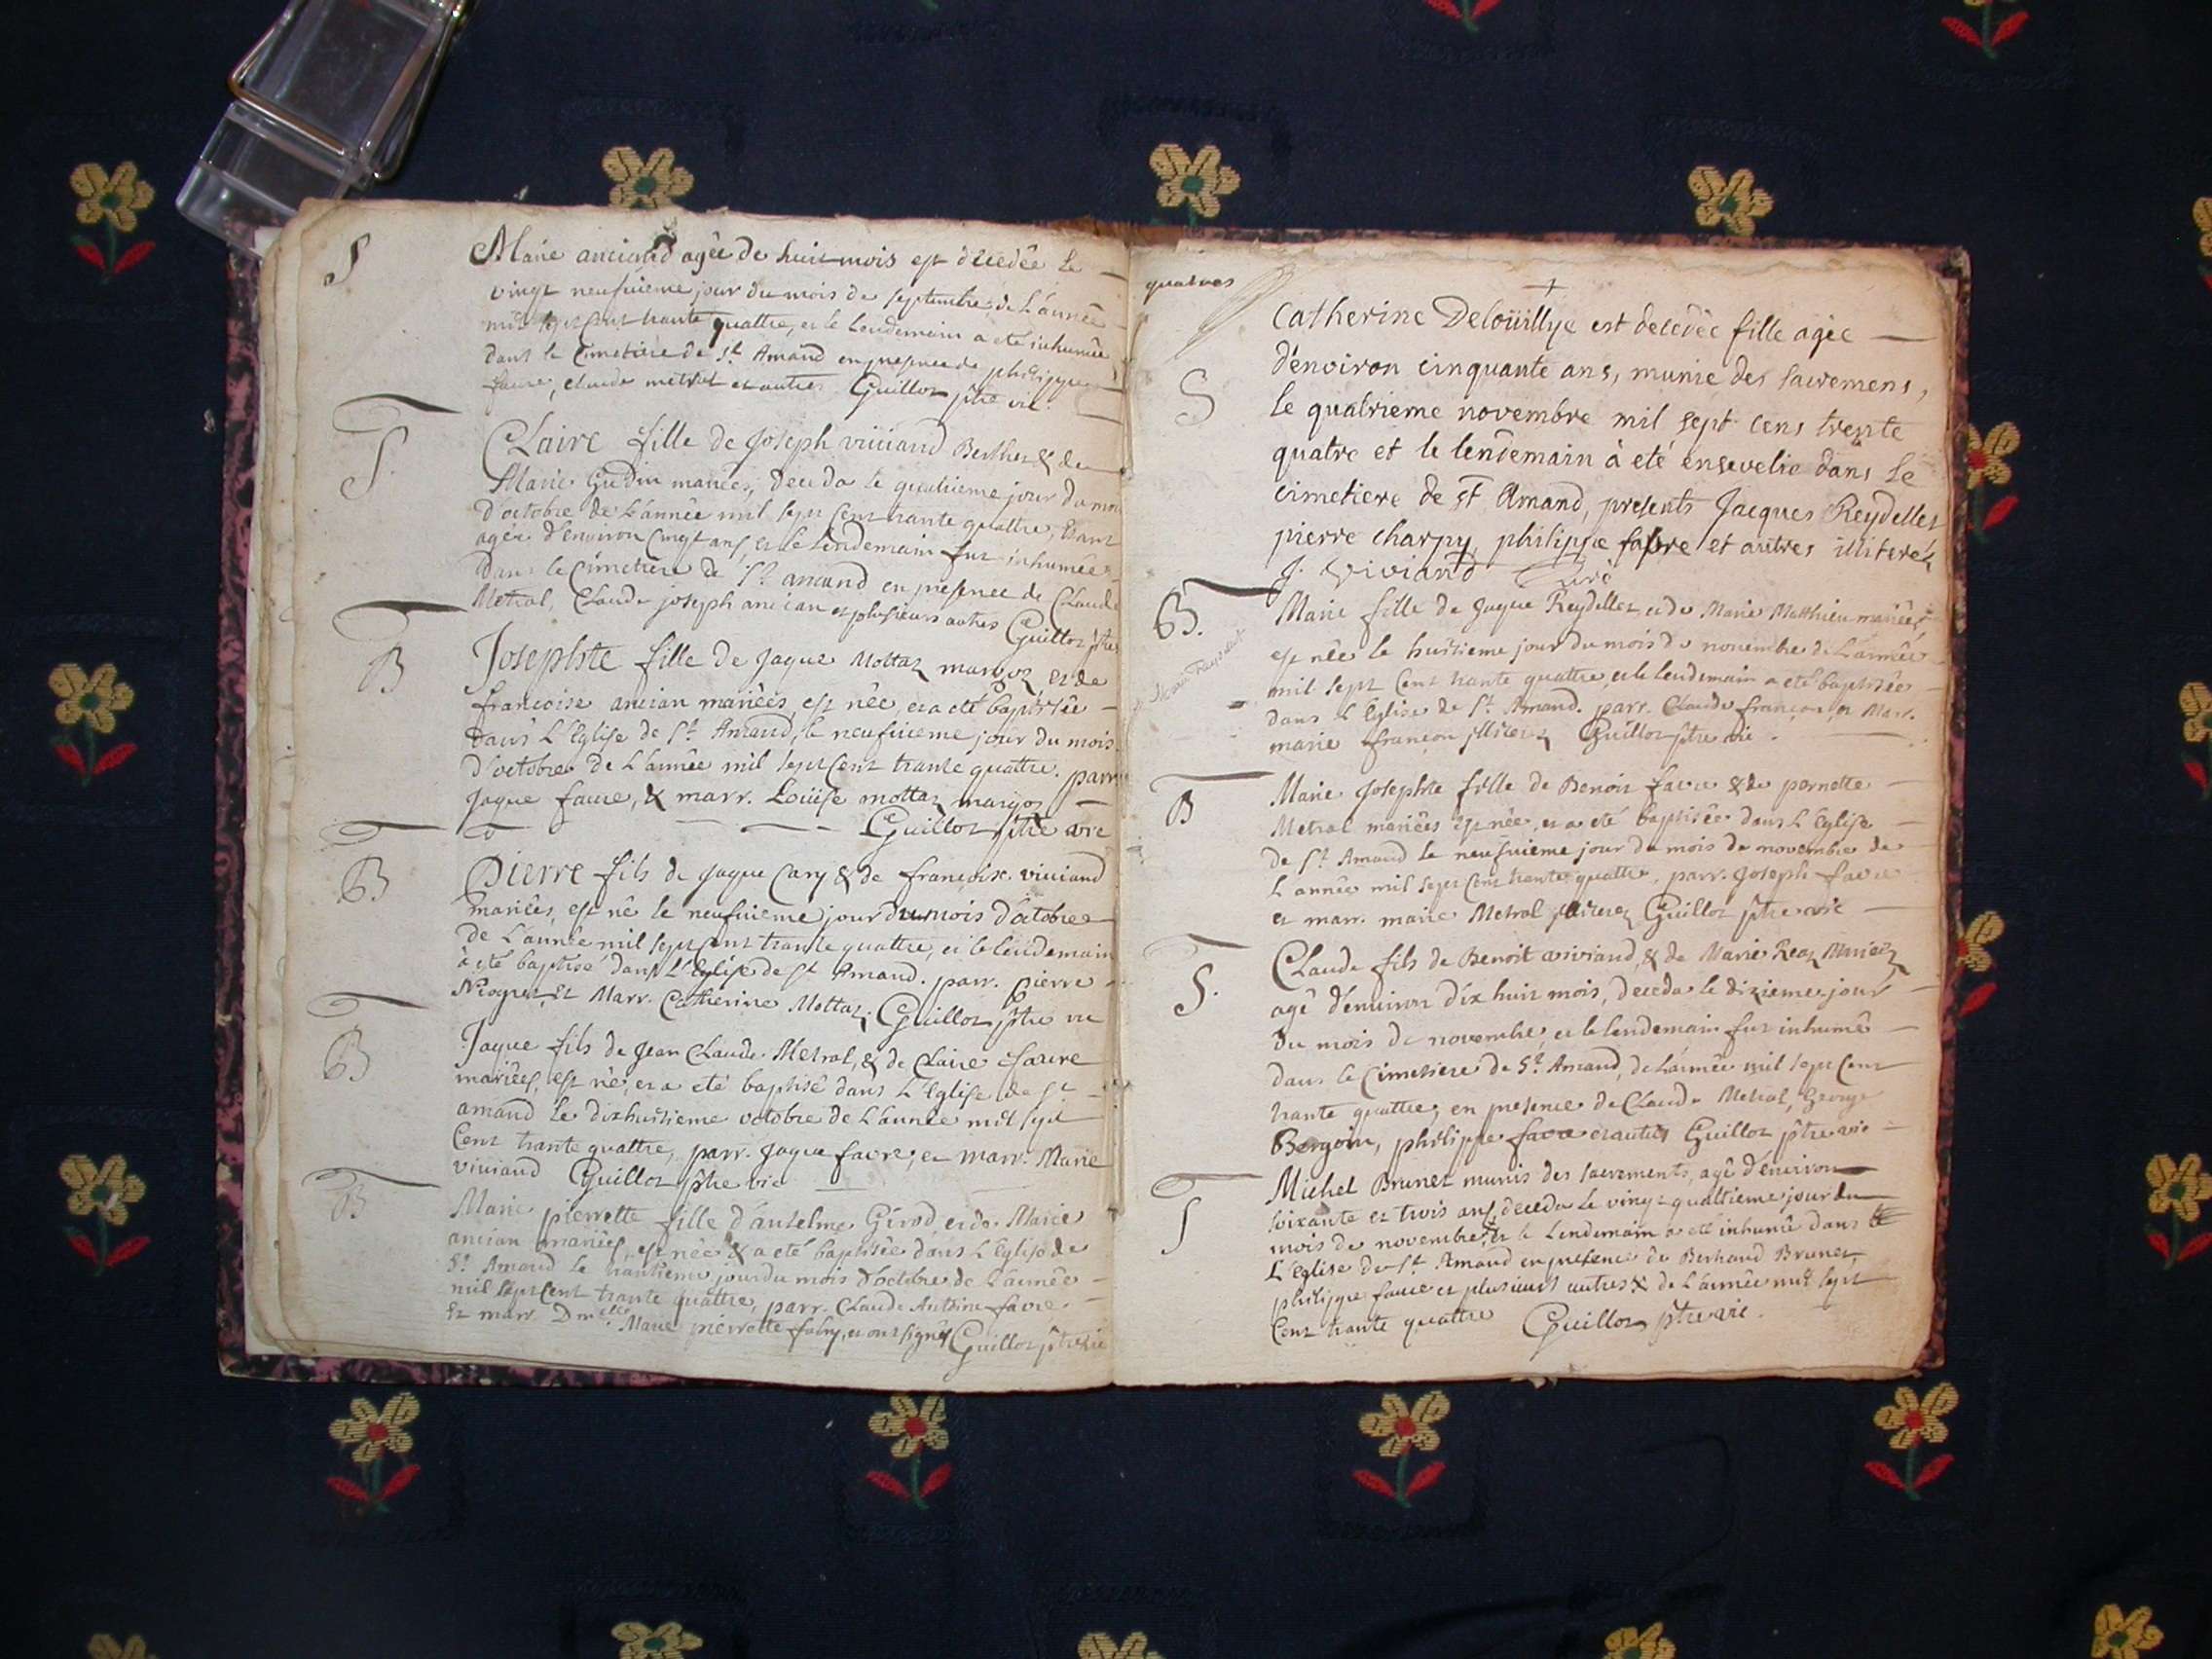 S
Marie anciand agée de huit mois est décedée le
vingt neufuieme jour du mois de septembre de L'année
mil sept Cent trante quattre, et le lendemain a eté inhumée
dans le Cimetiere de St. Amand en presence de philippe
faure, claude metral et autres Guillot ptre vic.
S.
Claire fille de Joseph viviand Berthet & de
Marie Gudin mariés, deceda le quatrieme jour du moi
d'octobre de L'année mil sept Cent trante quattre, étant
agée d'environ Cinqt ans, et le lendemain fut inhumée
dans le Cimetiere de St. amand en presence de Claude
Metral, Claude joseph ancian et plusieurs autres Guillot ptre
B
Josephte fille de Jaque Mottaz margoz et de
francoise ancian mariées, est née, et a eté baptisée
dans L'Eglise de St. Amand, le neufuieme jour du mois
d'octobre de L'année mil sept Cent trante quattre. parr.
Jaque faure, & marr. Loüise mottaz margoz
Guillot ptre vic
B
Pierre fils de Jaque Cary & de francoise viviand
mariées, est né le neufuieme jour du mois d'octobre
de L'année mil sept Cent trante quattre, et le lendemain
a eté baptisé dans L'Eglise de St Amand. parr. pierre
et Marr. Catherine Mottaz. Guillot ptre vic
B
Jaque fils de Jean Claude Metral, & de Claire faure
mariées, est né, et a eté baptisé dans L'Eglise de St
amand le dixhuitieme octobre de L'année mil sept
Cent trante quattre, parr. Jaque favre, et marr. Marie
viviand Guillot ptre vic
B
Marie pierrette fille d'anselme Girod et de Marie
ancian mariées, est née & a eté baptisée dans L'Eglise de
St. Amand le trantieme jour du mois d'octobre de L'année
mil sept Cent trante quattre, parr. Claude Antoine favre.
Et marr. Dmelle. Marie pierrette fabry, et ont signés Guillot ptre vic
quatres
S
Catherine Deloüillye est decedée fille agée
d'environ cinquante ans, munie des sacremens,
le quatrieme novembre mil sept cens trente
quatre et le lendemain à eté ensevelie dans le
cimetiere de st Amand, presents Jacques Reydellet
pierre charpy, philippe favre et autres illiterés
J. Viviand Curé
B.
Marie Reydelet
Marie fille de Jaque Reydellet et de Marie Matthieu mariées
est née le huitieme jour du mois de novembre de L'année
mil sept Cent trante quattre, et le lendemain a eté baptisée
dans L'Eglise de St. Amand. parr. Claude françon et Marr.
marie françon illiterez Guillot ptre vic.
B
Marie Josephte fille de Benoit favre & de pernette
Metral mariées est née, et a eté baptisée dans L'Eglise
de St. Amand le neufuieme jour du mois de novembre de
L'année mil sept Cent trante quattre, parr. Joseph favre
et marr. marie Metral illiterez Guillot ptre vic
S.
Claude fils de Benoit viviand, & de Marie Reaz Mariéez
agé d'environ dix huit mois, deceda le dizieme jour
du mois de novembre, et le lendemain fut inhumé
dans le Cimetiere de St. Amand, de L'année mil sept Cent
trante quattre, en presence de Claude Metral, George
Bergoin, philippe favre et autres Guillot ptre vic
S
Michel Brunet munis des sacrements, agé d'environ
soixante et trois ans, deceda le vingt quattrieme jour du
mois de novembre, et le lendemain a eté inhumé dans
L'Eglise de St. Amand en presence de Bertrand Brunet,
philippe faure et plusieurs autres & de L'année mil sept
Cent trante quattre Guillot ptre vic.